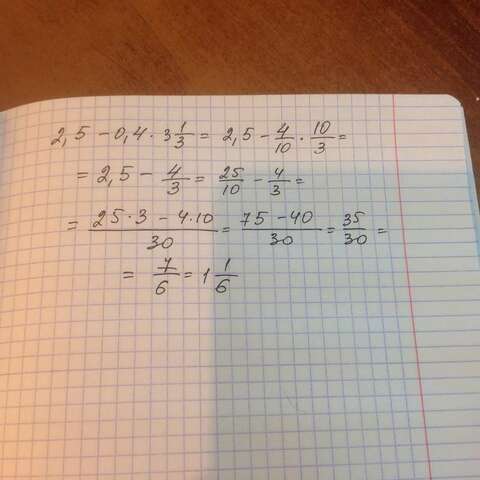 2,5 - 0,4 · 3 1/3 = 2,5 - 4/10 · 10/3 =
= 2,5 - 4/3 = 25/10 - 4/3 =
= (25·3 - 4·10)/30 = (75 - 40)/30 = 35/30 =
= 7/6 = 1 1/6